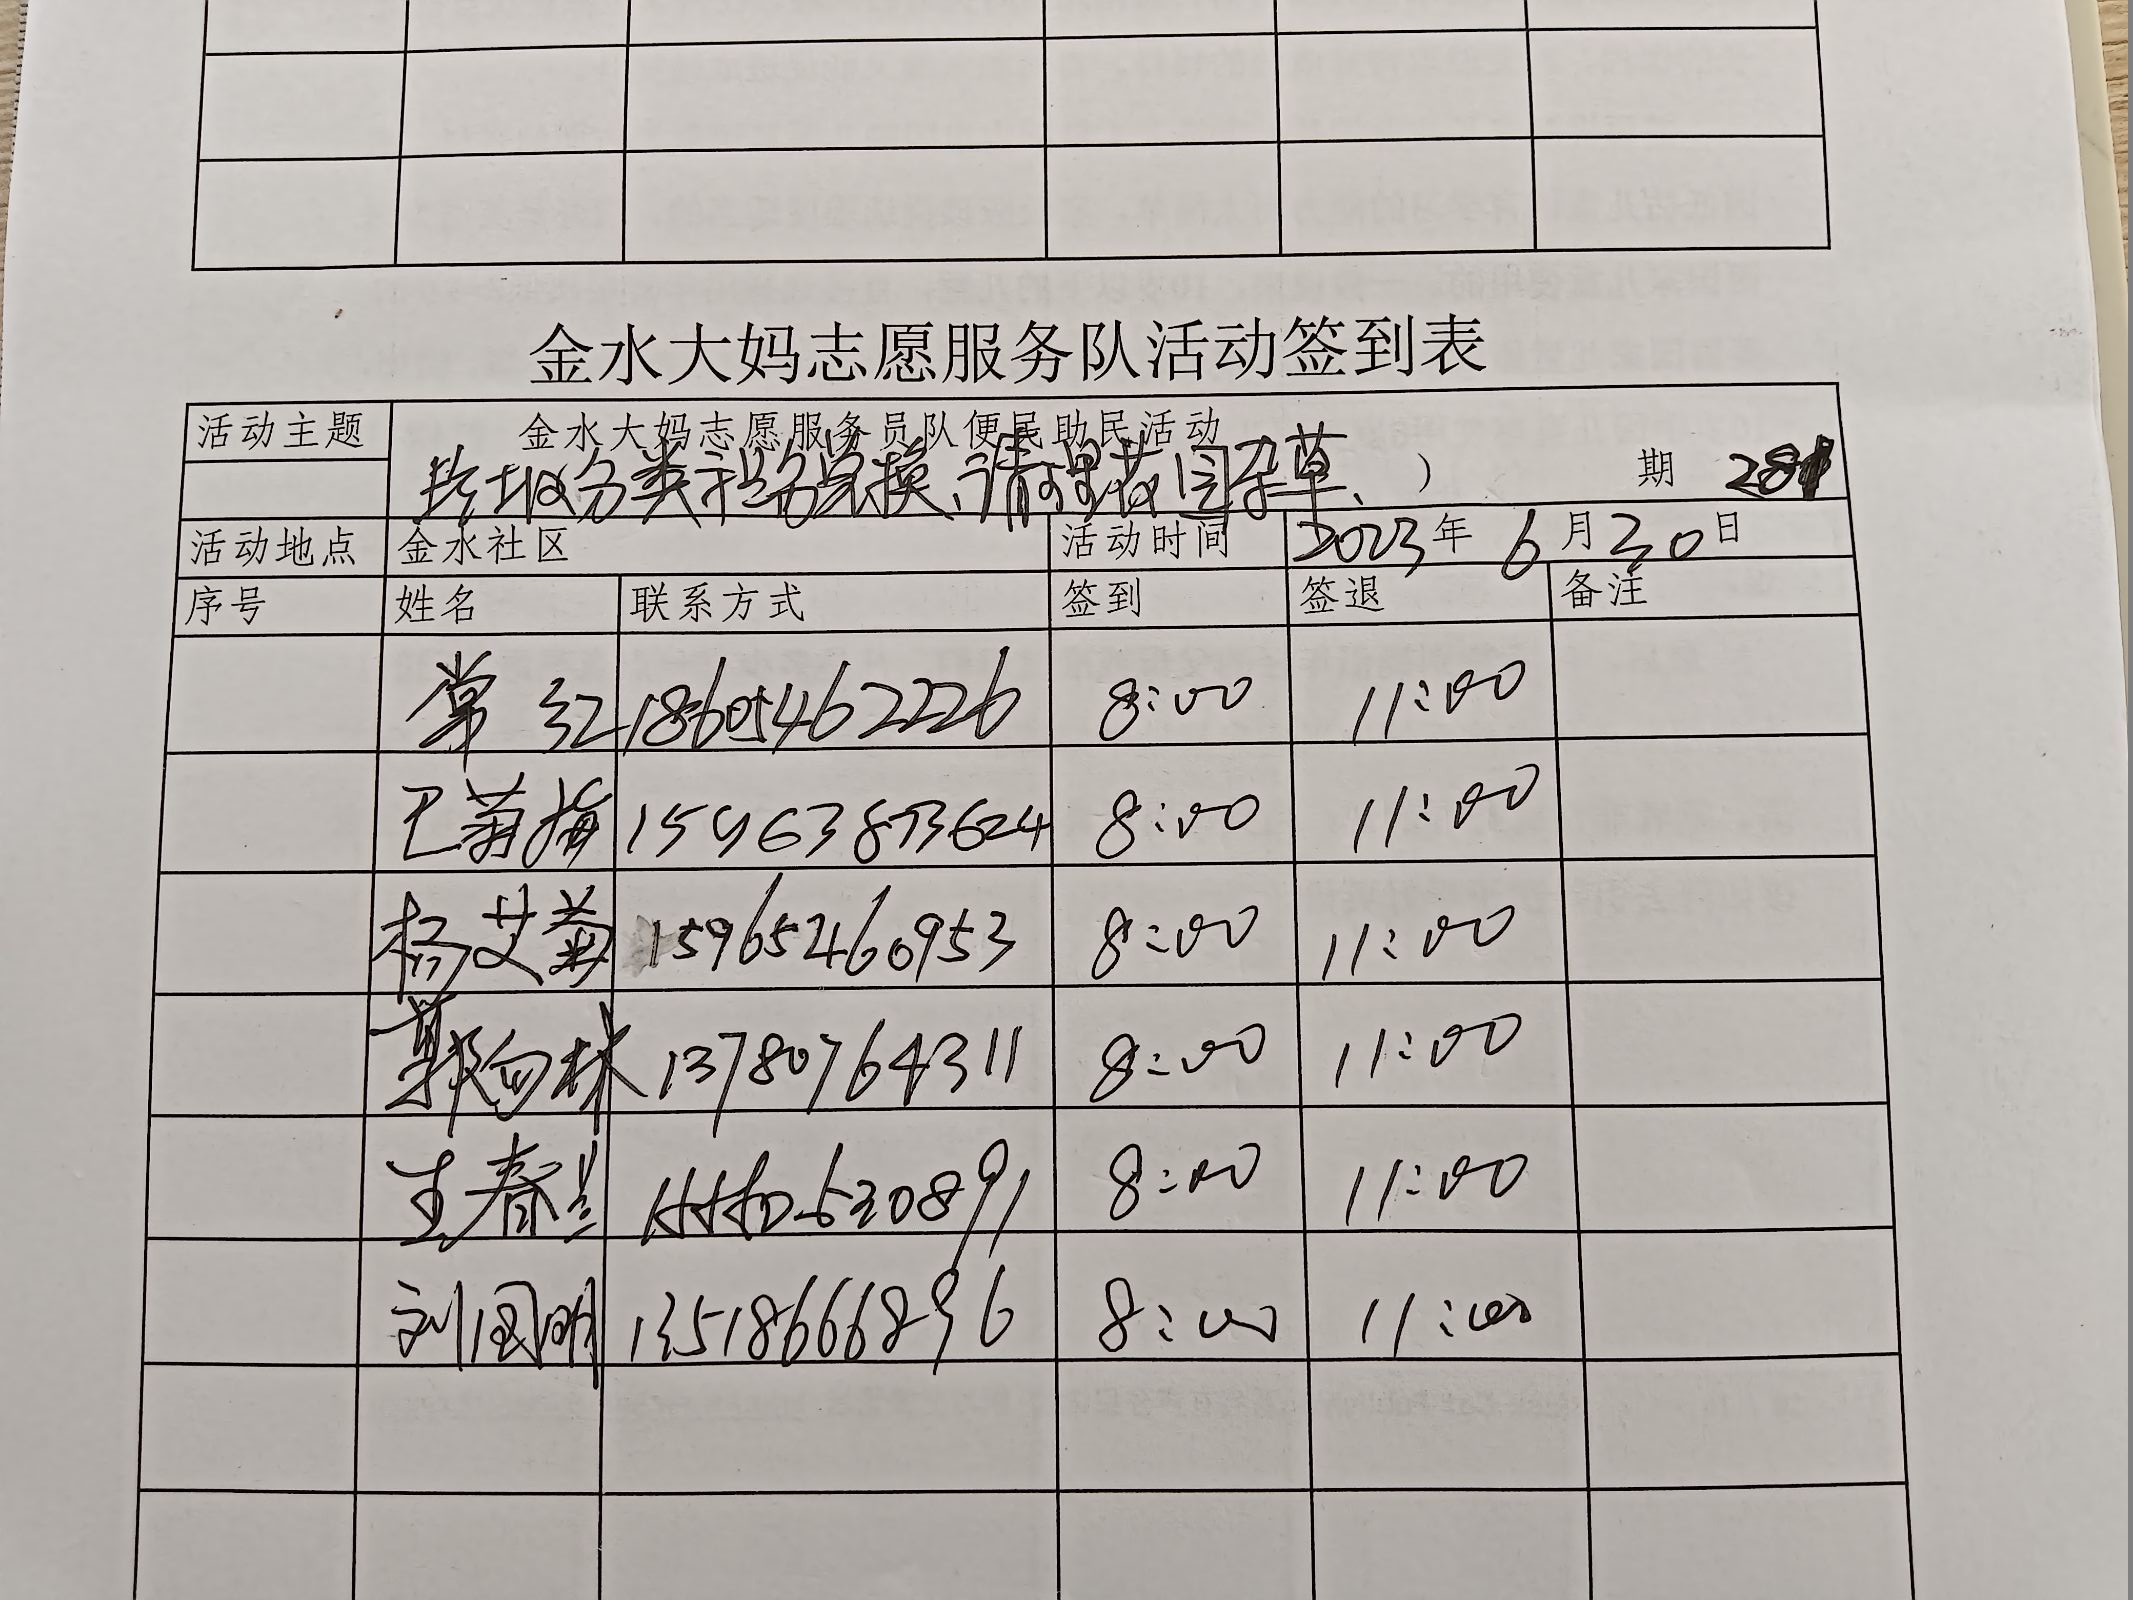 金水大妈志愿服务队活动签到表
活动主题 金水大妈志愿服务员队便民助民活动
垃圾分类积分兑换、请理花园杂草、 ） 期 281
活动地点 金水社区 活动时间 2023年6月30日
序号 姓名 联系方式 签到 签退 备注
常红 18605462226 8:00 11:00
巴菊梅 15963873624 8:00 11:00
杨艾菊 15965460953 8:00 11:00
郭向林 13780764311 8:00 11:00
王春兰 8:00 11:00
刘国明 13518666896 8:00 11:00